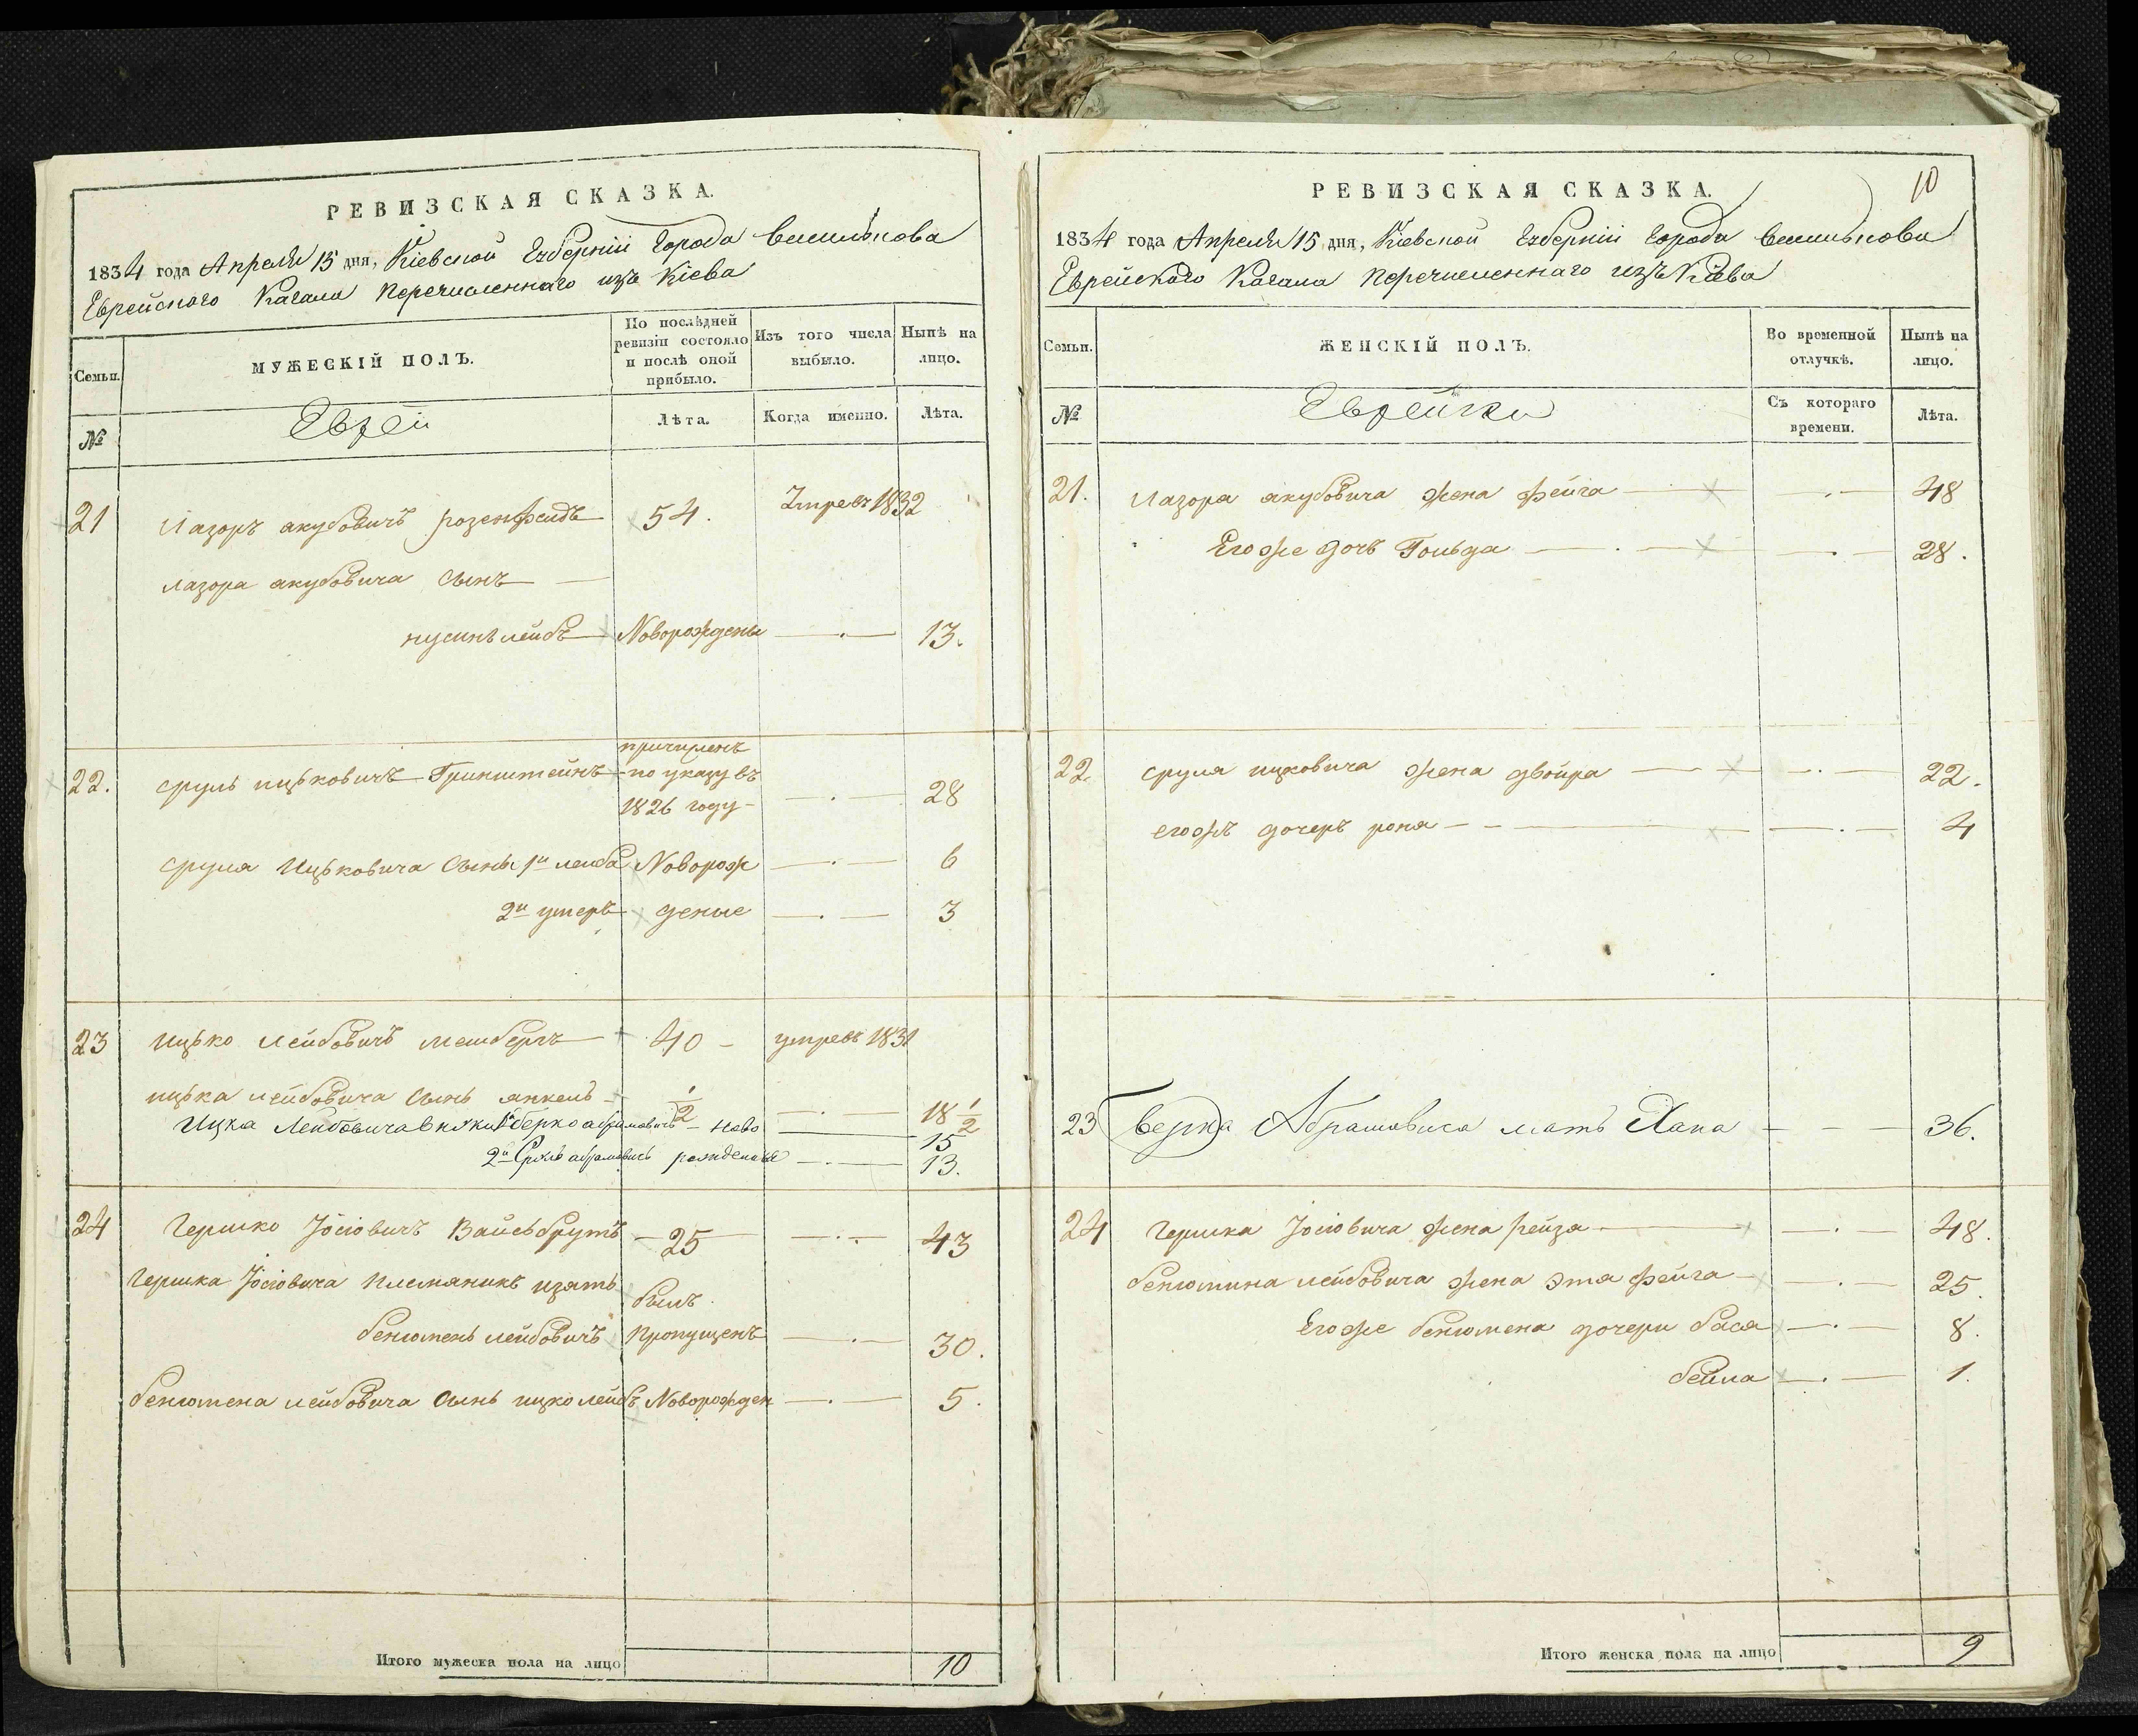 РЕВИЗСКАЯ СКАЗКА.
1834 года Апреля 15 дня, Кіевской Губерніи Города Василькова
Еврейского Кагала перечисленнаго изъ Кіева
Семьи.
МУЖЕСКІЙ ПОЛЪ.
По послѣдней ревизіи состояло и послѣ оной прибыло.
Изъ того числа выбыло.
Нынѣ на лицо.
№
Евреи
Лѣта.
Когда именно.
Лѣта.
21 Лазоръ якубовичъ розенфелдъ 54. 1832
лазора якубовича сынъ
нусинъ лейбъ Новорождены 13.
22. сруль ицьковичъ Гринштейнъ причисленъ по указу въ 1826 году 28
сруля Ицьковича сыны 1й лейба Новорож 6
2й деные 3
23 ицько лейбовичъ 40 умре въ 1831
ицька лейбовича сынъ янкель 1/2 18 1/2
Ицка Лейбовича внуки 1й берко абрамовичъ ново 15
2й Сруль абрамовичъ рожденые 13.
24 гершко Іосіовичъ Вайсьбрутъ 25 43
гершка Іосіовича племяникъ изять былъ
бенюмень лейбовичъ пропущенъ 30.
бенюмена лейбовича сынь ицко лейбъ Новорожден 5.
Итого мужеска пола на лицо 10
10
РЕВИЗСКАЯ СКАЗКА.
1834 года Апреля 15 дня, Кіевской Губерніи Города Василькова
Еврейского Кагала перечисленнаго изъ Кіева
Семьи.
ЖЕНСКІЙ ПОЛЪ.
Во временной отлучкѣ.
Нынѣ на лицо.
№
Еврейки
Съ котораго времени.
Лѣта.
21. Лазора якубовича жена фейга 48
Его же дочь Гольда 28.
22. сруля ицковича жена двойра 22.
егожъ дочеръ роня 4
23 берка Абрамовича мать Хана 36.
24 гершка Іосіовича жена рейза 48.
бенюмина лейбовича жена этя фейга 25.
Егоже бенюмена дочери бася 8.
бейла 1.
Итого женска пола на лицо 9